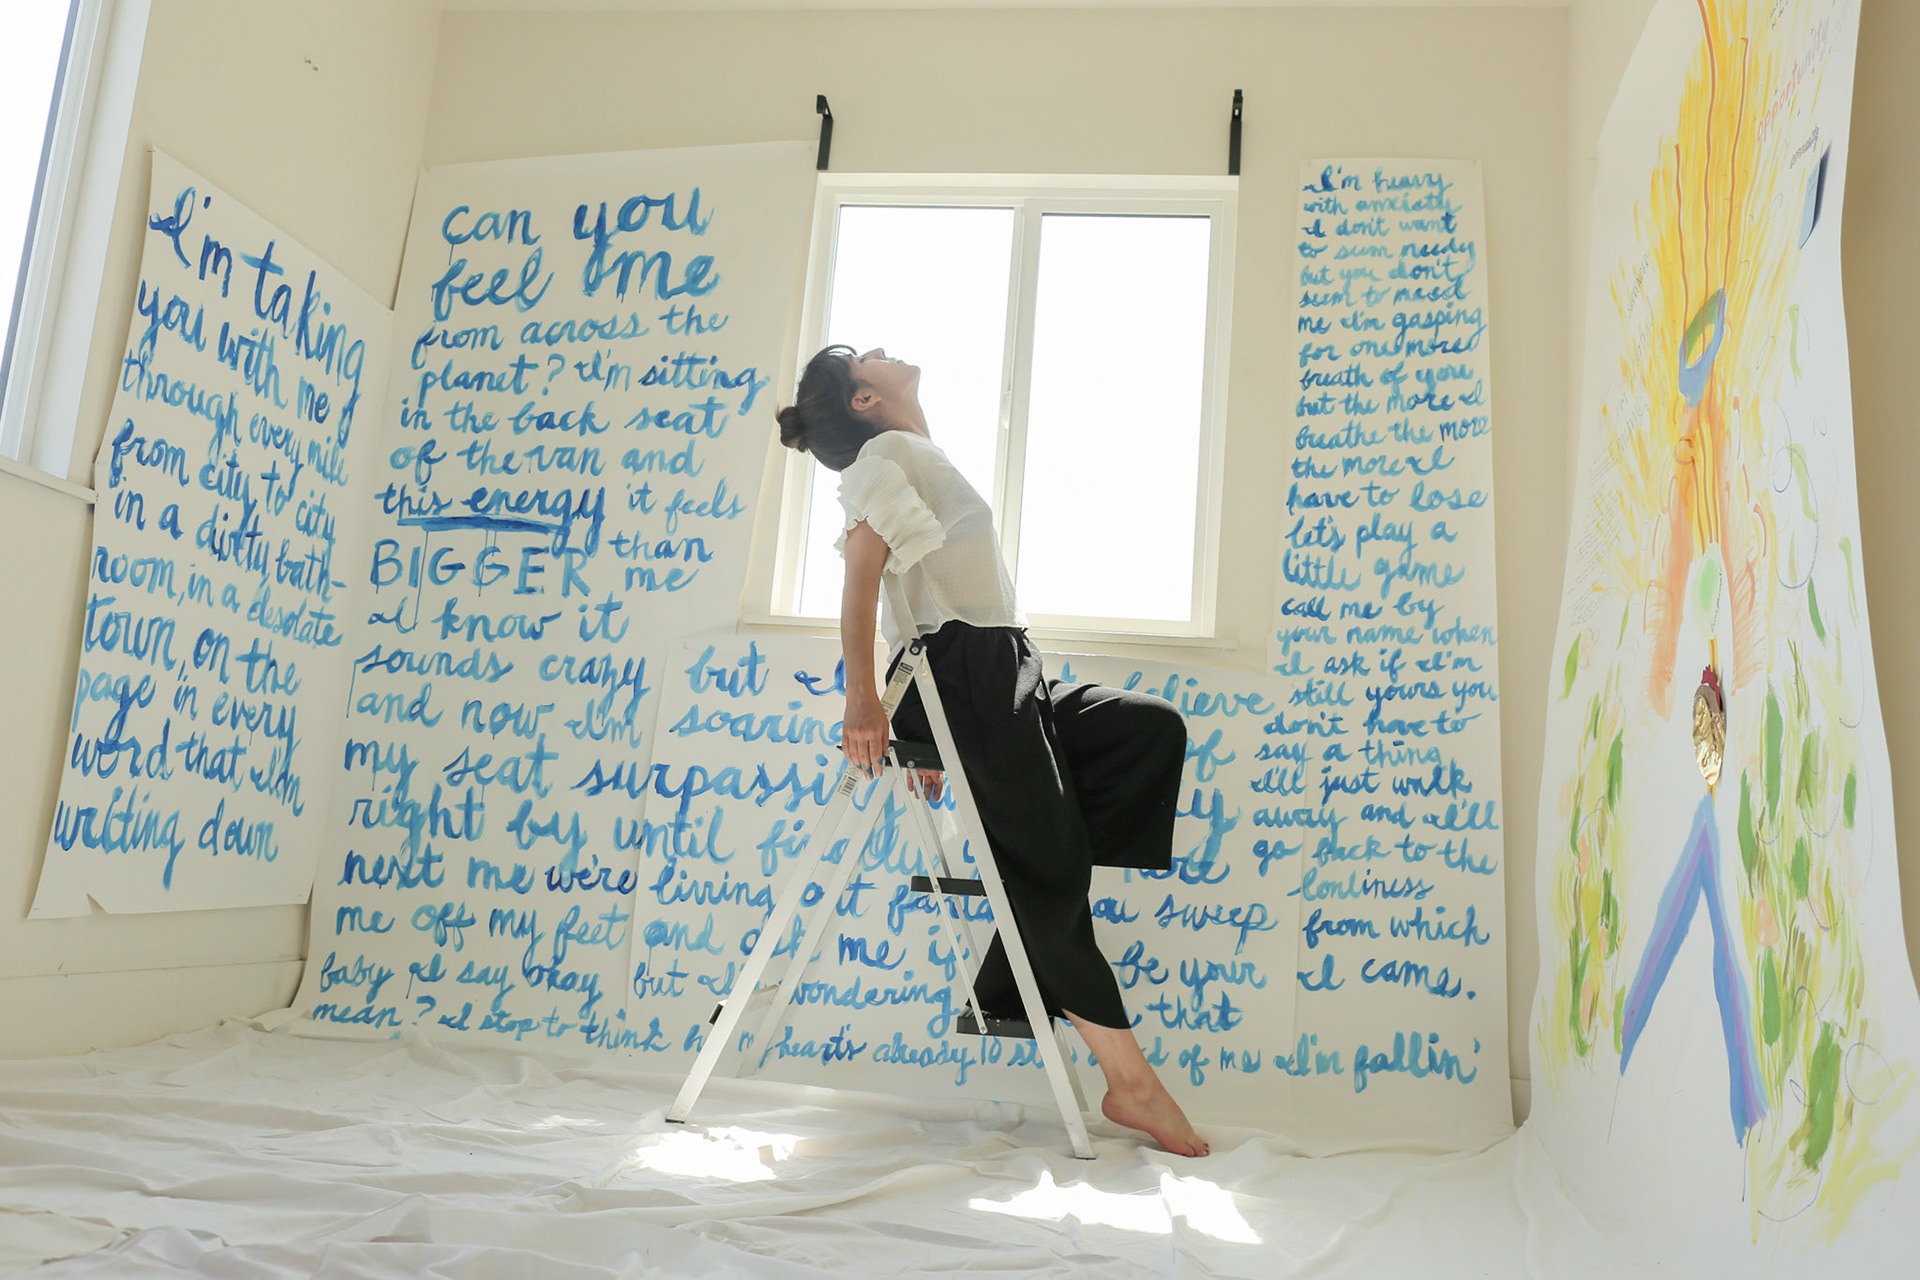 I'm taking
you with me
through every mile
from city to city
in a dirty bath-
room, in a desolate
town, on the
page in every
word that I'm
writing down
can you
feel me
from across the
planet? I'm sitting
in the back seat
of the van and
this energy it feels
BIGGER than
me
I know it
sounds crazy
and now I'm
my seat
right by
next me we're
me off my feet
baby I say okay
mean? I stop to think
but I
believe
soaring
of
surpassing
until
living out
you sweep
and ask me if
be your
but I'm wondering
that
my heart's already 10 st
of me I'm fallin'
I'm heavy
with anxiety
I don't want
to seem needy
but you don't
seem to need
me I'm gasping
for one more
breath of you
but the more I
breathe the more
the more I
have to lose
let's play a
little game
call me by
your name when
I ask if I'm
still yours you
don't have to
say a thing
I'll just walk
away and I'll
go back to the
lonliness
from which
I came.
opportunity